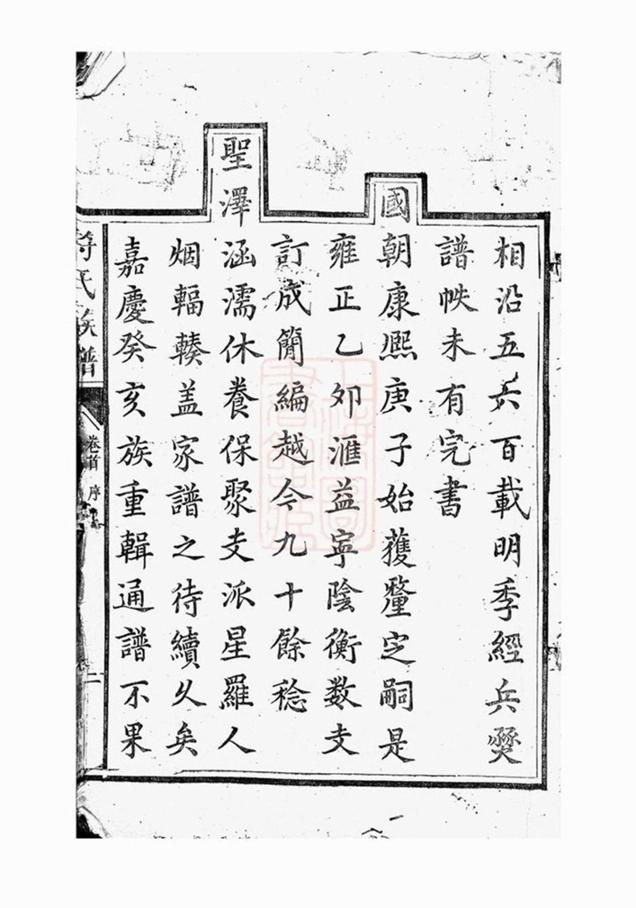 相沿五六百載明季經兵燹
譜帙未有完書
國朝康熙庚子始獲釐定嗣是
雍正乙夘滙益寧陰衡數支
訂成簡編越今九十餘稔
聖澤涵濡休養保聚支派星羅人
烟輻輳盖家譜之待續久矣
嘉慶癸亥族重輯通譜不果
氏族譜
卷首 序
二